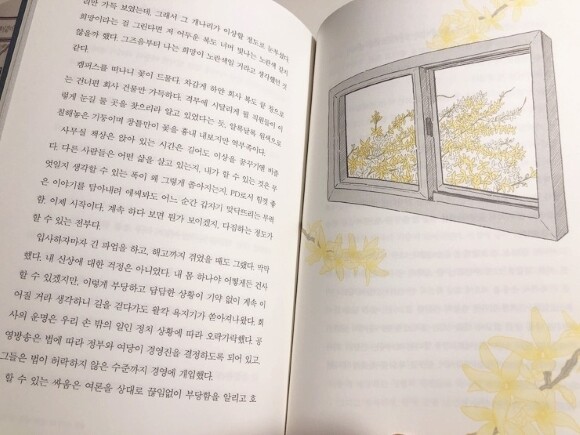 리만 가득 보였는데, 그래서 그 개나리가 이상할 정도로 눈부셨다.
희망이라는 걸 그린다면 저 어두운 복도 너머 빛나는 노란색 같지
않을까 했다. 그즈음부터 나는 희망이 노란색일 거라고 생각했던 것
같다.
캠퍼스를 떠나니 꽃이 드물다. 차갑게 하얀 회사 복도 끝 창으로
는 건너편 회사 건물만 가득하다. 격무에 시달리게 될 직원들이 이
렇게 눈길 둘 곳을 찾으리라 알고 있었다는 듯, 알록달록 원색으로
칠해놓은 기둥이며 창틀만이 꽃을 흉내 내보지만 역부족이다.
사무실 책상은 앉아 있는 시간은 길어도 이상을 꿈꾸기엔 비좁
다. 다른 사람들은 어떤 삶을 살고 있는지, 내가 할 수 있는 것은 무
엇일지 생각할 수 있는 폭이 왜 그렇게 좁아지는지. PD로서 힘껏 좋
은 이야기를 담아내려 애써봐도 어느 순간 갑자기 맞닥뜨리는 무력
함. 이제 시작이다. 계속 하다 보면 뭔가 보이겠지, 다짐하는 정도가
할 수 있는 전부다.
입사하자마자 긴 파업을 하고, 해고까지 겪었을 때도 그랬다. 막막
했다. 내 신상에 대한 걱정은 아니었다. 내 몸 하나야 어떻게든 건사
할 수 있겠지만, 이렇게 부당하고 답답한 상황이 기약 없이 계속 이
어질 거라 생각하니 길을 걷다가도 왈칵 욕지기가 쏟아져나왔다. 회
사의 운명은 우리 손 밖의 일인 정치 상황에 따라 오락가락했다. 공
영방송은 법에 따라 정부와 여당이 경영진을 결정하도록 되어 있고,
그들은 법이 허락하지 않은 수준까지 경영에 개입했다.
할 수 있는 싸움은 여론을 상대로 끊임없이 부당함을 알리고 호